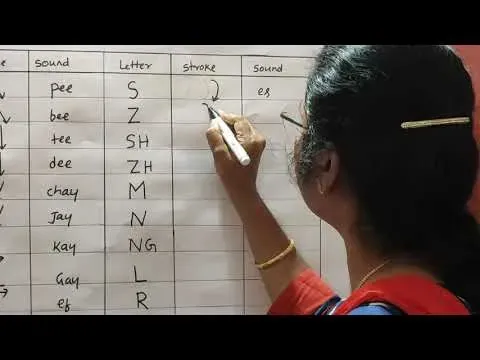 e Sound Letter Stroke Sound
pee S es
bee Z
tee SH
dee ZH
chay M
Jay N
Kay NG
Gay L
ef R